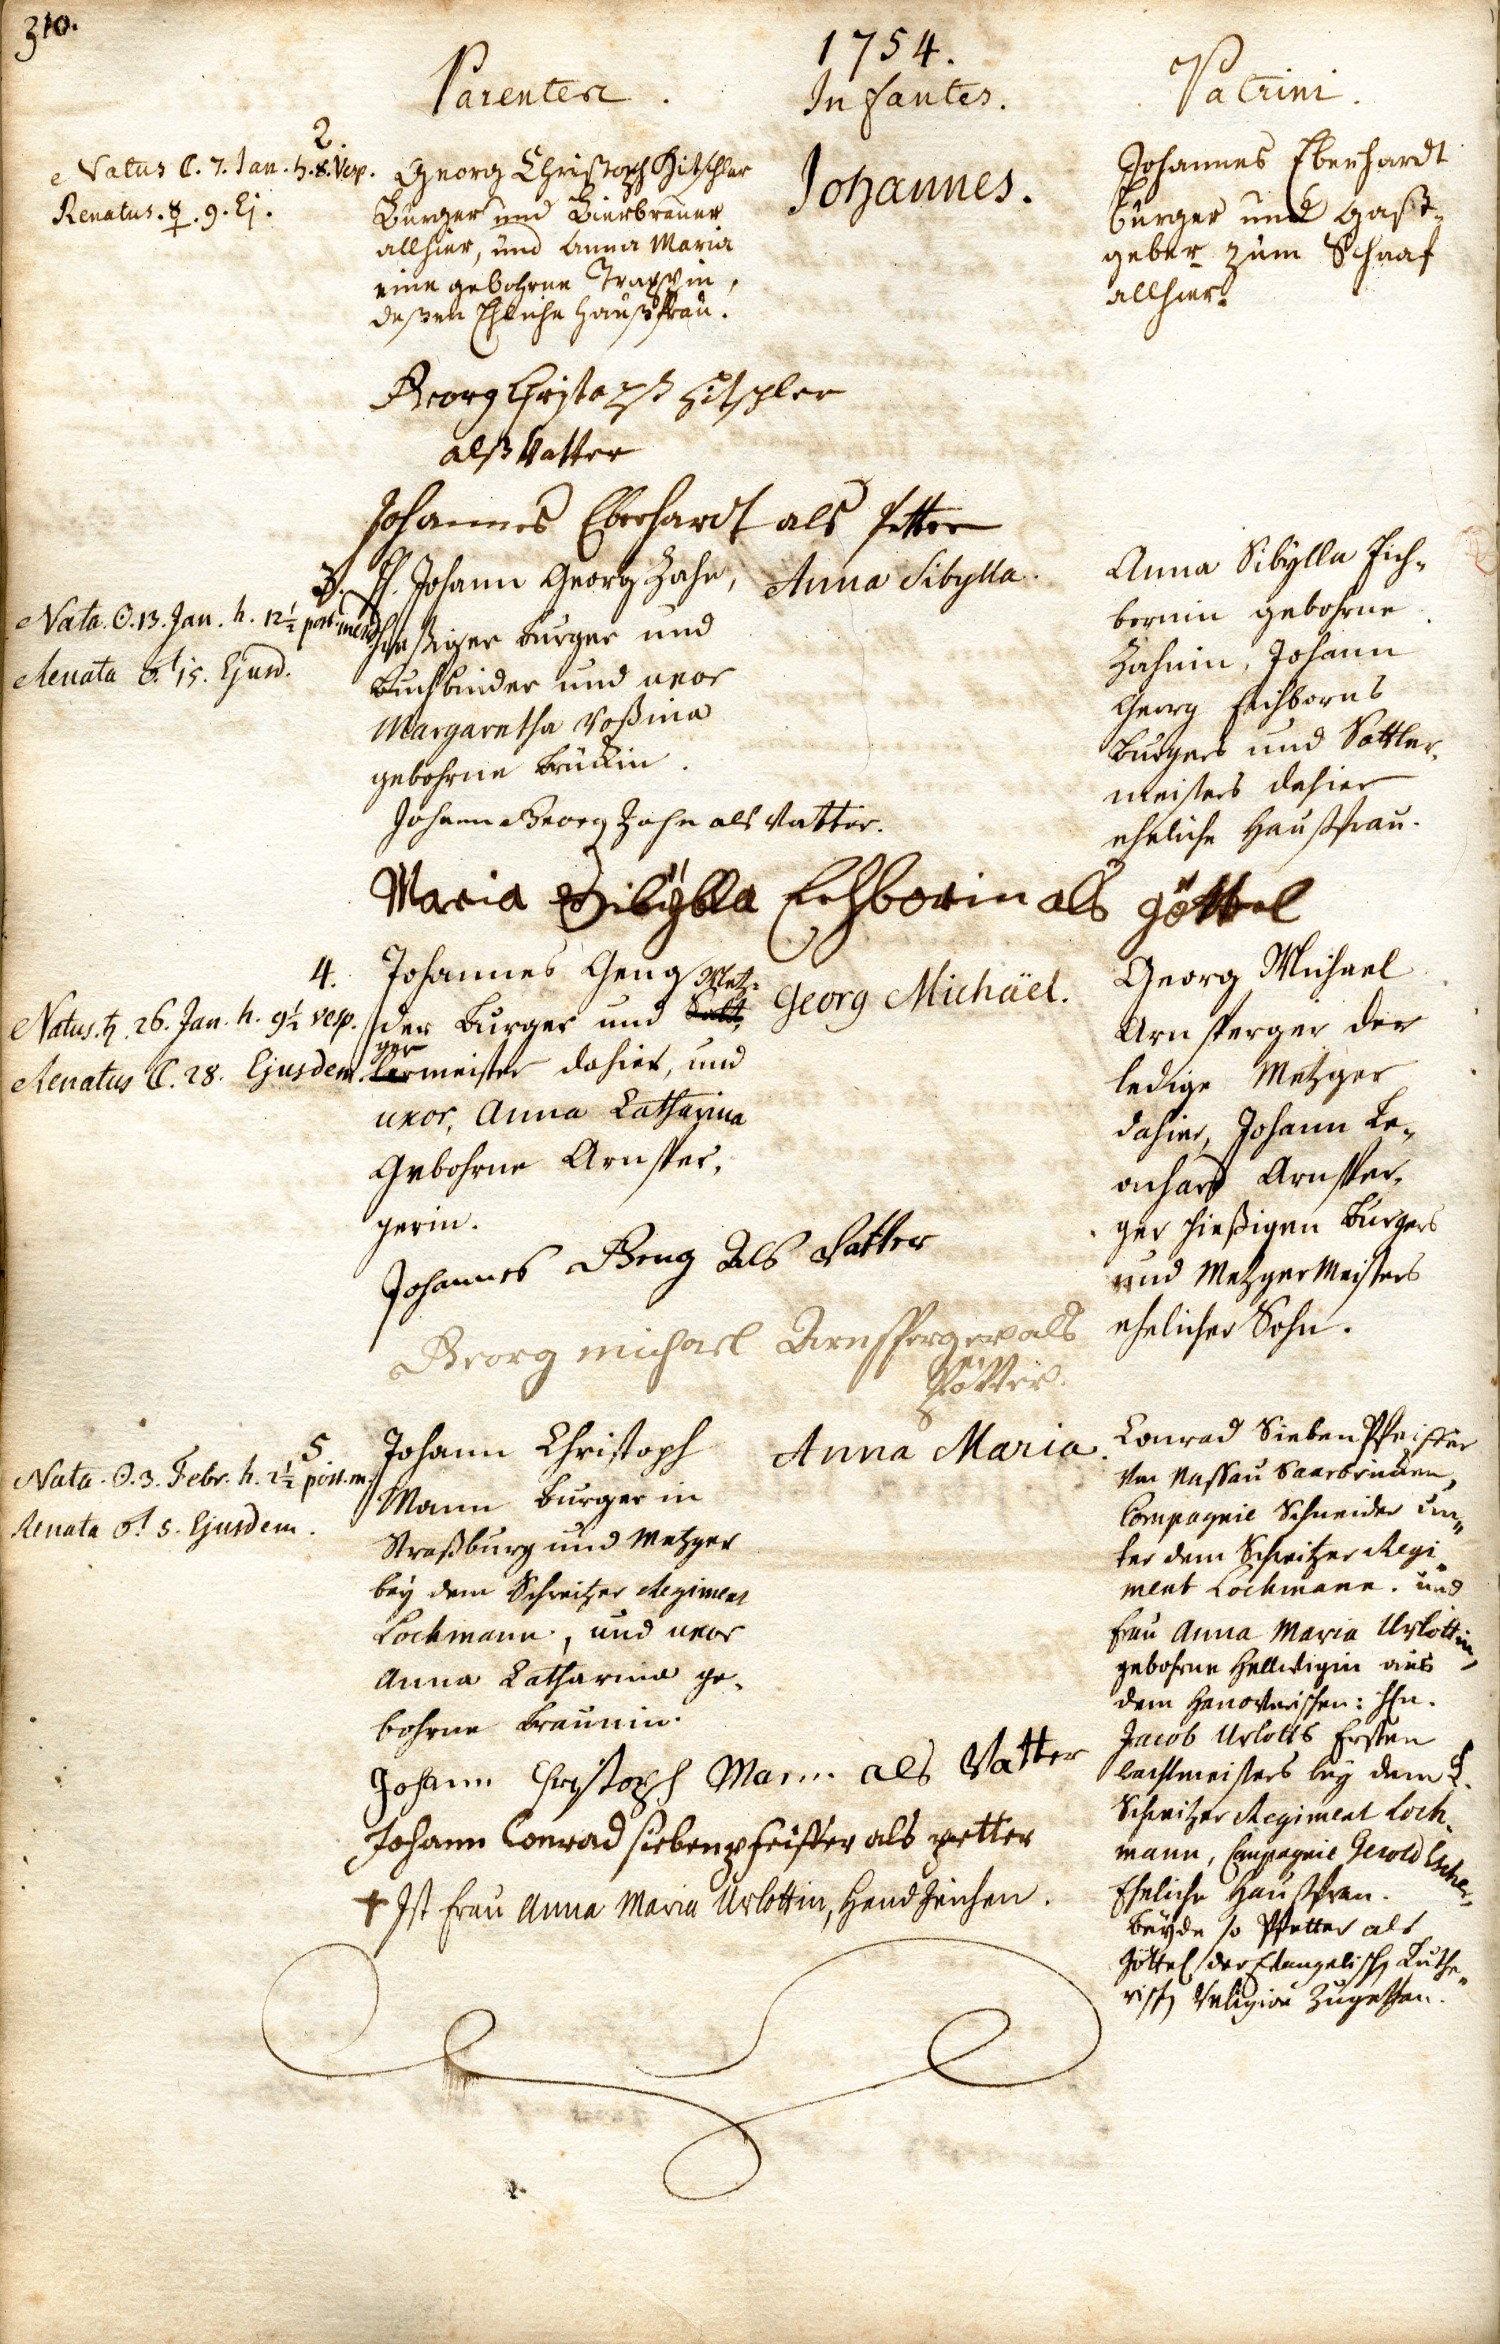 310.
1754.
Parentes.
Infantes.
Patrini.
2.
Natus ☾. 7. Jan. h. 8. Vesp.
Renatus. ☿. 9. Ej.
Georg Christoph Hitschler
Burger und Bierbrauer
allhier, und Anna Maria
eine gebohrne Trappin,
deßen Ehliche Haußfrau.
Johannes.
Johannes Eberhardt
burger und Gast-
geber zum Schaaf
allhier.
Georg Christoph Hitschler
alß Vatter
Johannes Eberhardt als Petter
3.
Nata. ☉. 13. Jan. h. 12½ post merid.
Renata ♂. 15. Ejusd.
H. Johann Georg Zahn,
hießiger burger und
buchbinder und uxor
Margaretha Roßina
gebohrne Brückin.
Anna Sibylla.
Anna Sibylla Eich-
bornin gebohrne
Zahnin, Johann
Georg Eichborns
burgers und Sattler-
meisters dahier
eheliche Haußfrau.
Johann Georg Zahn als Vatter.
Maria Sibÿlla Eichborin als göttel
4.
Natus. ♄. 26. Jan. h. 9½ vesp.
Renatus ☾. 28. Ejusdem.
Johannes Geng
der burger und Satt- Metz-
ler ger meister dahier, und
uxor, Anna Catharina
Gebohrne Arnsper-
gerin.
Georg Michäel.
Georg Michael
Arnsperger der
ledige Metzger
dahier, Johann Le-
onhard Arnsper-
ger hießigen burgers
und Metzger Meisters
ehelicher Sohn.
Johannes Geng Als Vatter
Georg michael Arnsperger als
Pötter.
5
Nata. ☉. 3. Febr. h. 2½ post. m.
Renata ♂. 5. Ejusdem.
Johann Christoph
Mann burger in
Straßburg und Metzger
beÿ dem Schweitzer Regiment
Lochmann, und uxor
Anna Catharina ge-
bohrne Braunin.
Anna Maria.
Conrad SiebenPfeiffer
von Nassau Saarbrücken,
Compagnie Schneider un-
ter dem Schweitzer Regi-
ment Lochmann. und
frau Anna Maria Urlottin,
gebohrne Hellwigin aus
dem Hanoverischen: Hn.
Jacob Urlotts Ersten
wachtmeisters beÿ dem L.
Schweitzer Regiment Loch-
mann, Compagnie Gerold Escher,
Eheliche Haußfrau.
beÿde so Pfetter als
Göttel der Evangelisch Luthe-
risch Religion Zugethan.
Johann Christoph Mann als Vatter
Johann Conrad siebenpfeiffer als petter
+ Ist frau Anna Maria Urlottin, HandZeichen.